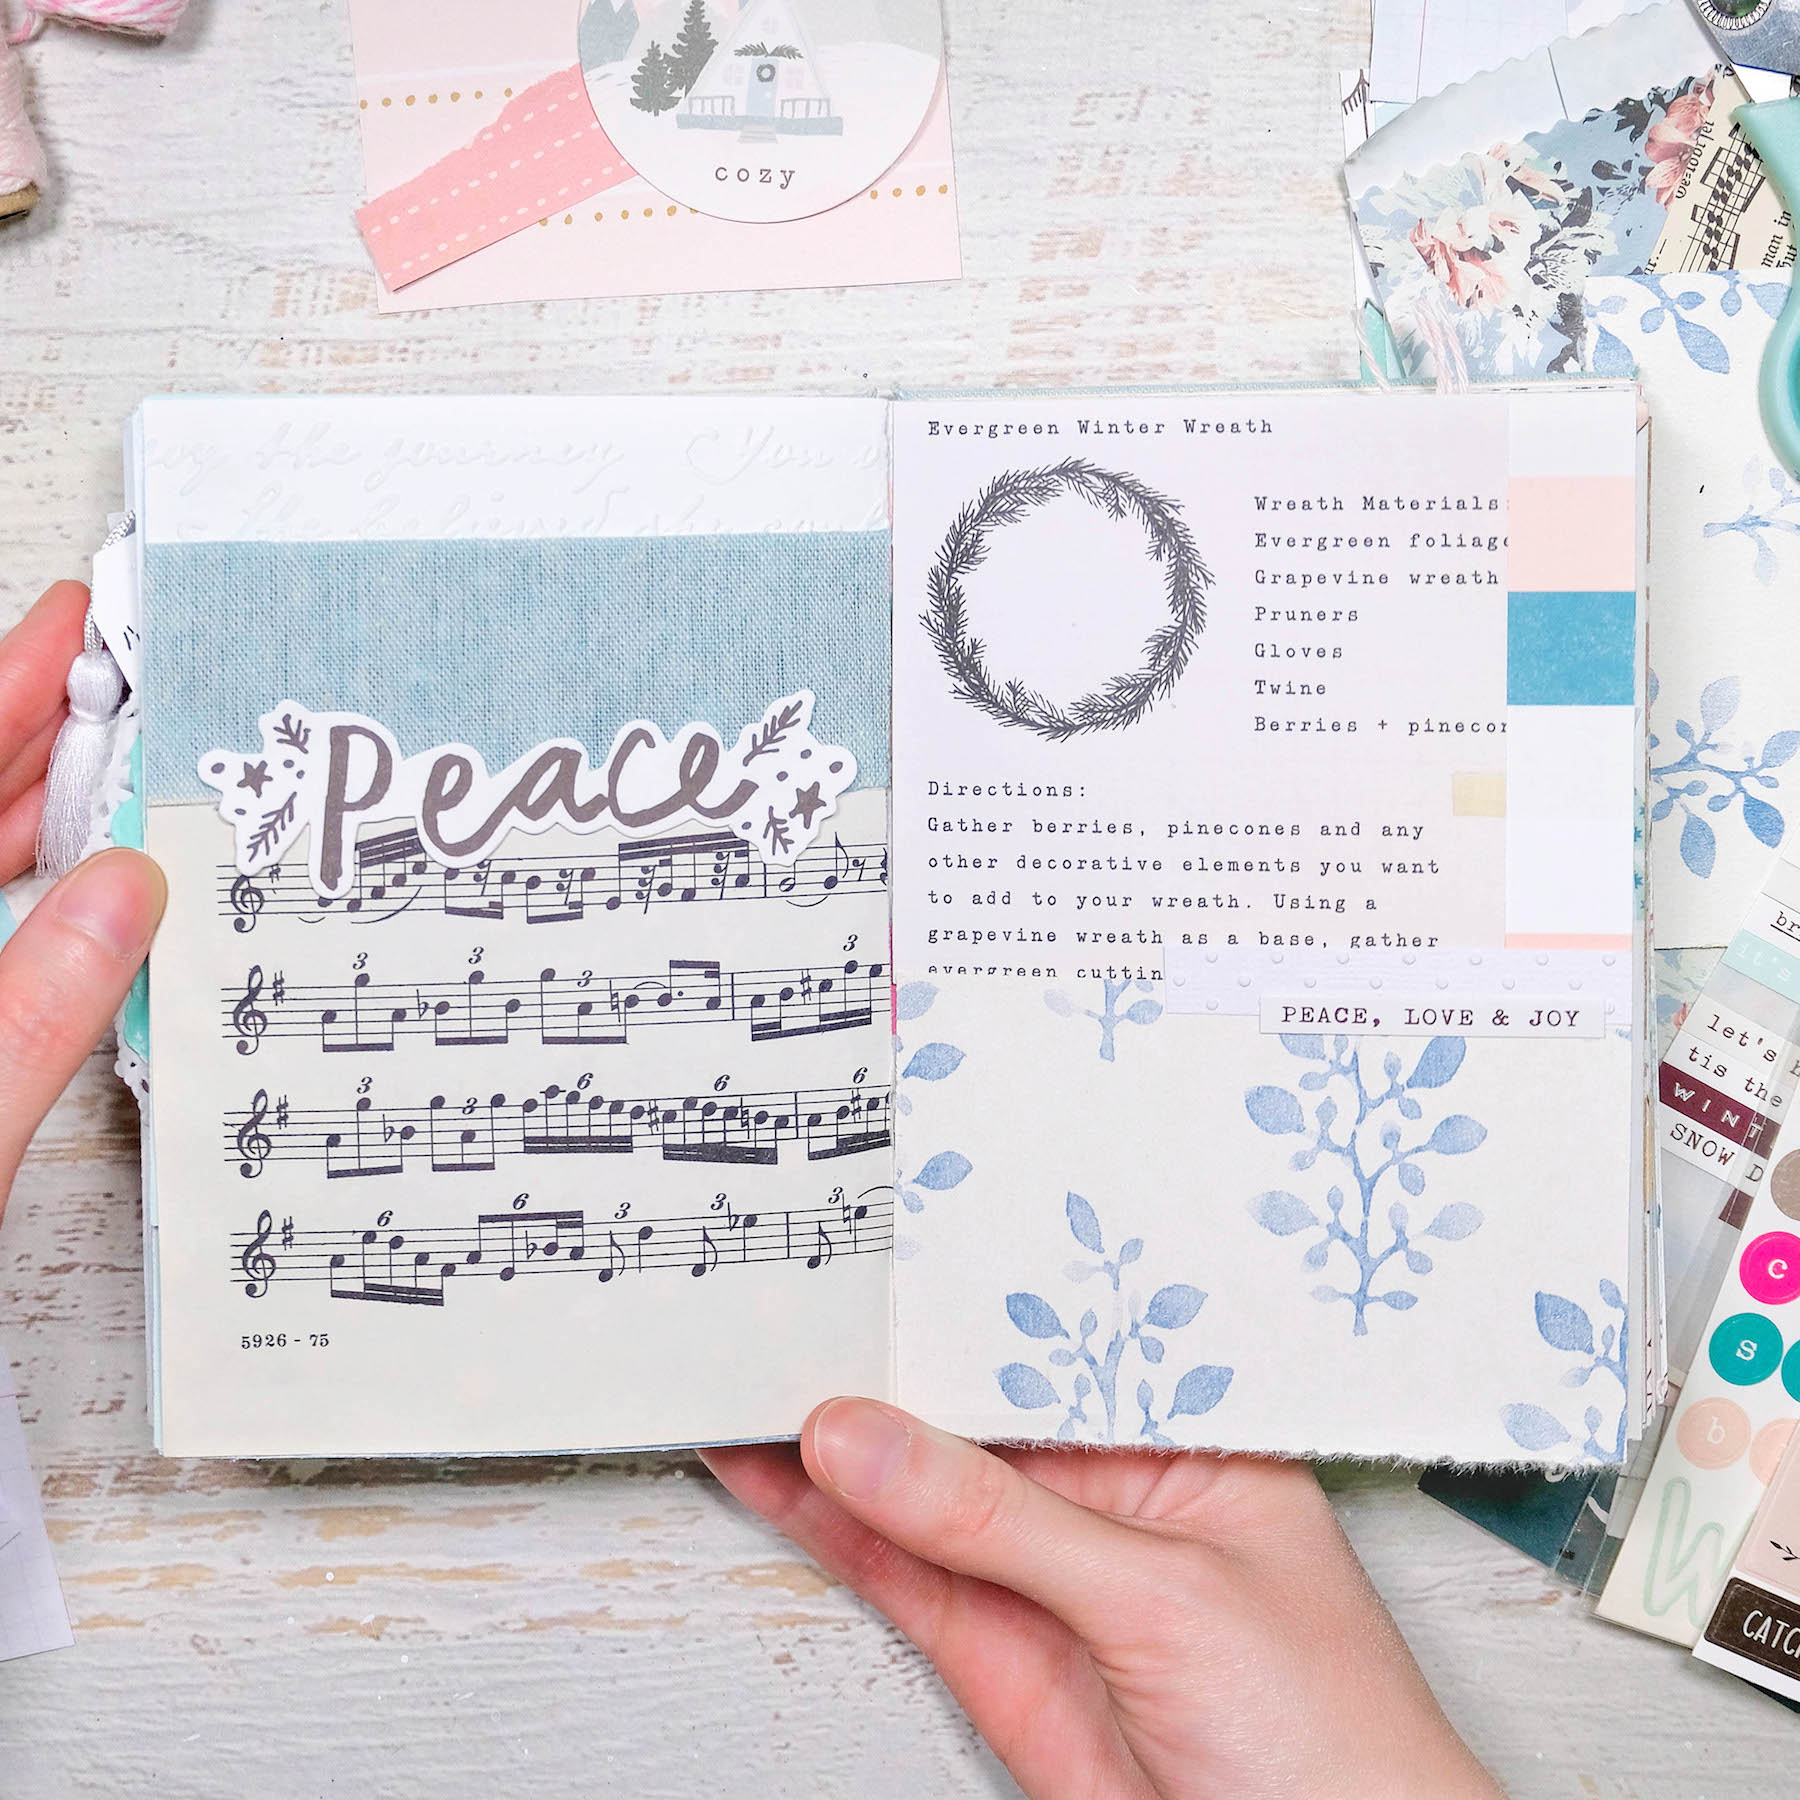 cozy
man in
the journey You
believed she
Peace
3 3 3
3 3 6 6 6
6 6 3 3 3
5926 - 75
Evergreen Winter Wreath
Wreath Materials
Evergreen foliage
Grapevine wreath
Pruners
Gloves
Twine
Berries + pinecon
Directions:
Gather berries, pinecones and any
other decorative elements you want
to add to your wreath. Using a
grapevine wreath as a base, gather
evergreen cuttin
PEACE, LOVE & JOY
it's
let's
tis the
WINT
SNOW
c
s
b
CATC